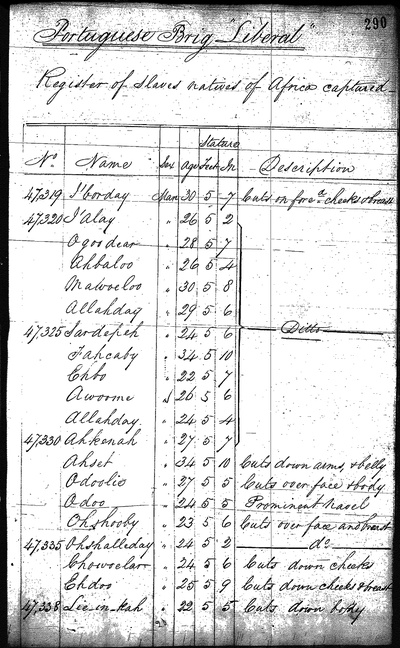 290
Portuguese Brig "Liberal"
Register of Slaves natives of Africa captured
Stature
No. Name Sex Age Feet In Description
47,319 J'borday Man 30 5 7 Cuts on fore.d cheeks & breast
47,320 J'Alay " 26 5 2
Ogoodear " 28 5 7
Ahbaloo " 26 5 4
Mawoeloo " 30 5 8
Allahday " 29 5 6
47,325 Sardepeh " 24 5 6 Ditto
Fahcaby " 34 5 10
Ehbo " 22 5 7
Awoome " 26 5 6
Allahday " 24 5 4
47,330 Ahkenah " 27 5 7
Ahset " 34 5 10 Cuts down arms, & belly
Odoolio " 27 5 5 Cuts over face & body
Odoo " 24 5 5 Prominent navel
Ohshooby " 23 5 6 Cuts over face and breast
47,335 Ohshalleday " 24 5 2 do
Chowoelarr " 24 5 6 Cuts down cheeks
Ehdoo " 25 5 9 Cuts down cheeks & breast
47,338 Lee-in-kah " 22 5 5 Cuts down body